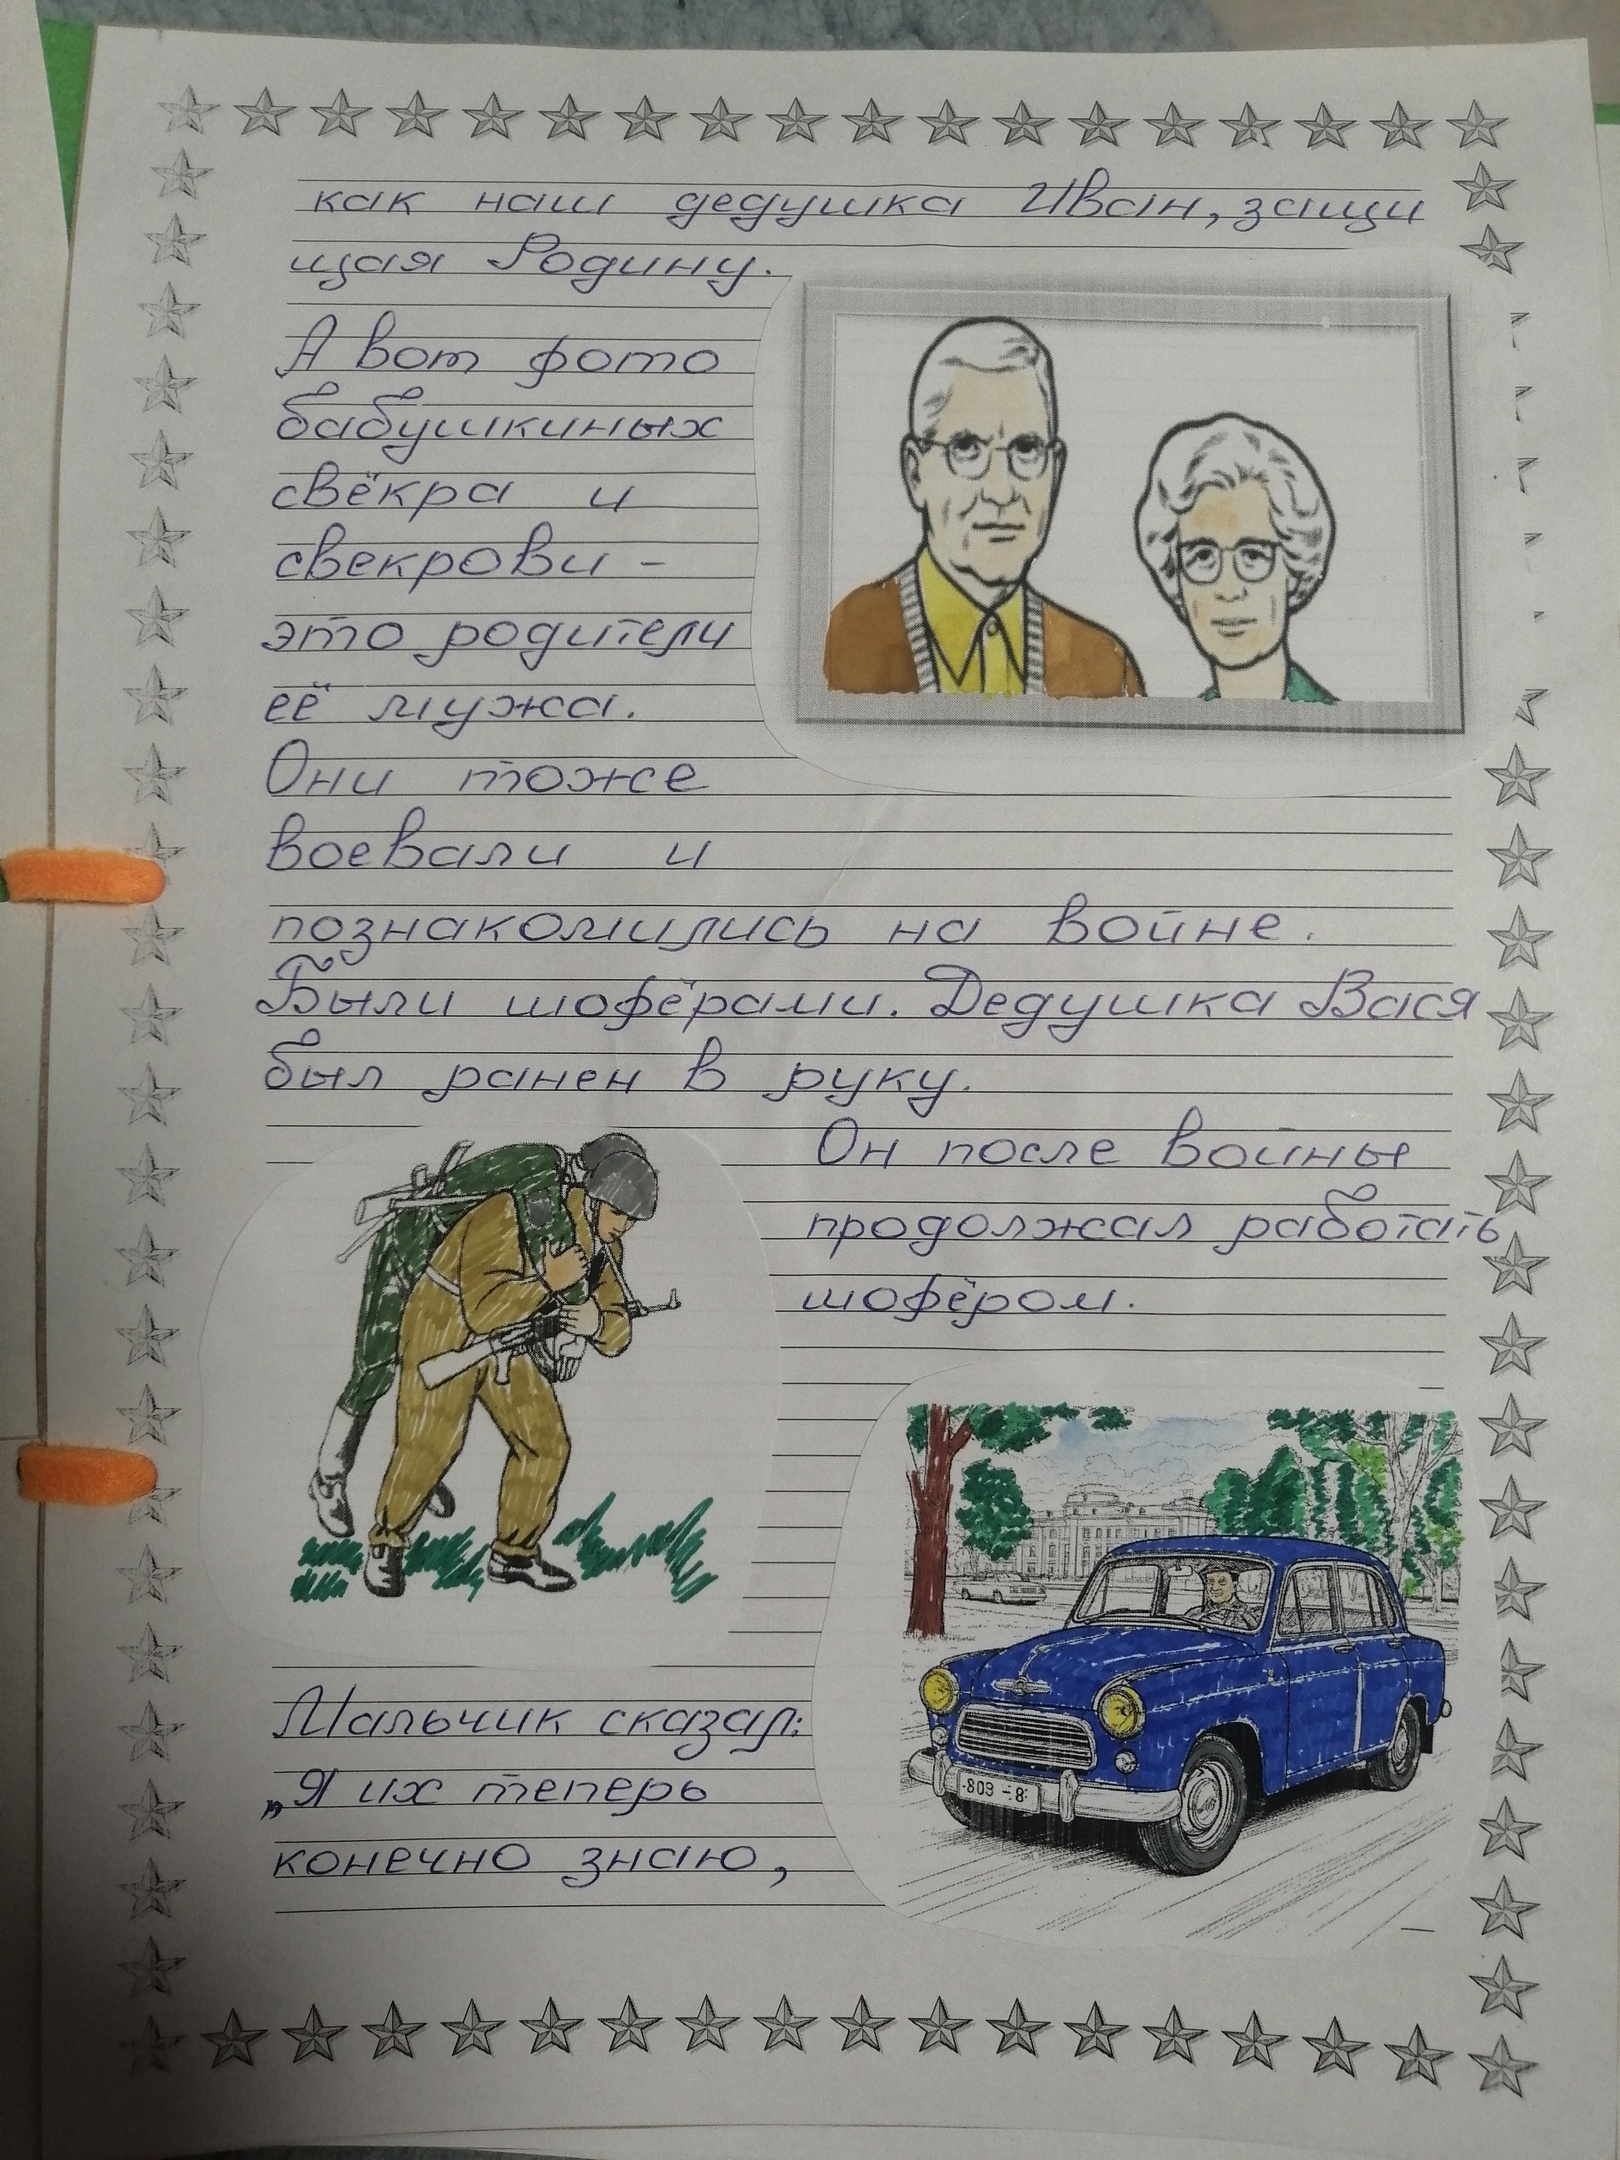 как наш дедушка Иван, защи
щая Родину.
А вот фото
бабушкиных
свёкра и
свекрови -
это родители
её мужа.
Они тоже
воевали и
познакомились на войне.
Были шофёрами. Дедушка Вася
был ранен в руку.
Он после войны
продолжал работать
шофёром.
Мальчик сказал:
„Я их теперь
конечно знаю,
803-8